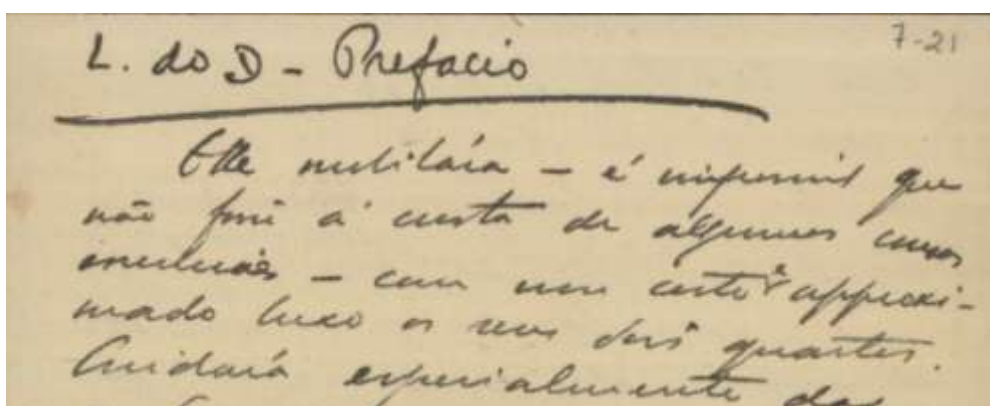 L. do D - Prefacio
7-21
Elle mobilára - é impossivel que
não fosse á custa de algumas cousas
essenciaes - com um certo e approxi-
mado luxo os seus dois quartos.
Cuidará especialmente das